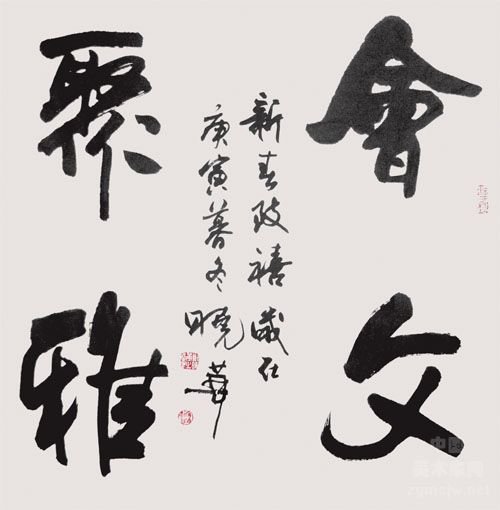 會文
聚雅
新春致禧歲在
庚寅暮冬曉華
中国
美术家网
zgmsjw.net